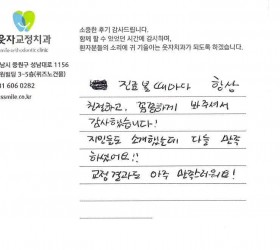 소중한 후기 감사드립니다.
함께 할 수 있었던 시간에 감사하며,
환자분들의 소리에 귀 기울이는 웃자치과가 되도록 하겠습니다.
웃자교정치과
orthodontic clinic
남시 중원구 성남대로 1156
3~5층(위즈노건물)
1 606 0282
smile.co.kr
진료 볼 때마다 항상
친절하고, 꼼꼼하게 봐주셔서
감사했습니다!
지인들도 소개했는데 다들 만족
하셨어요!!
교정 결과도 아주 만족스러워요!